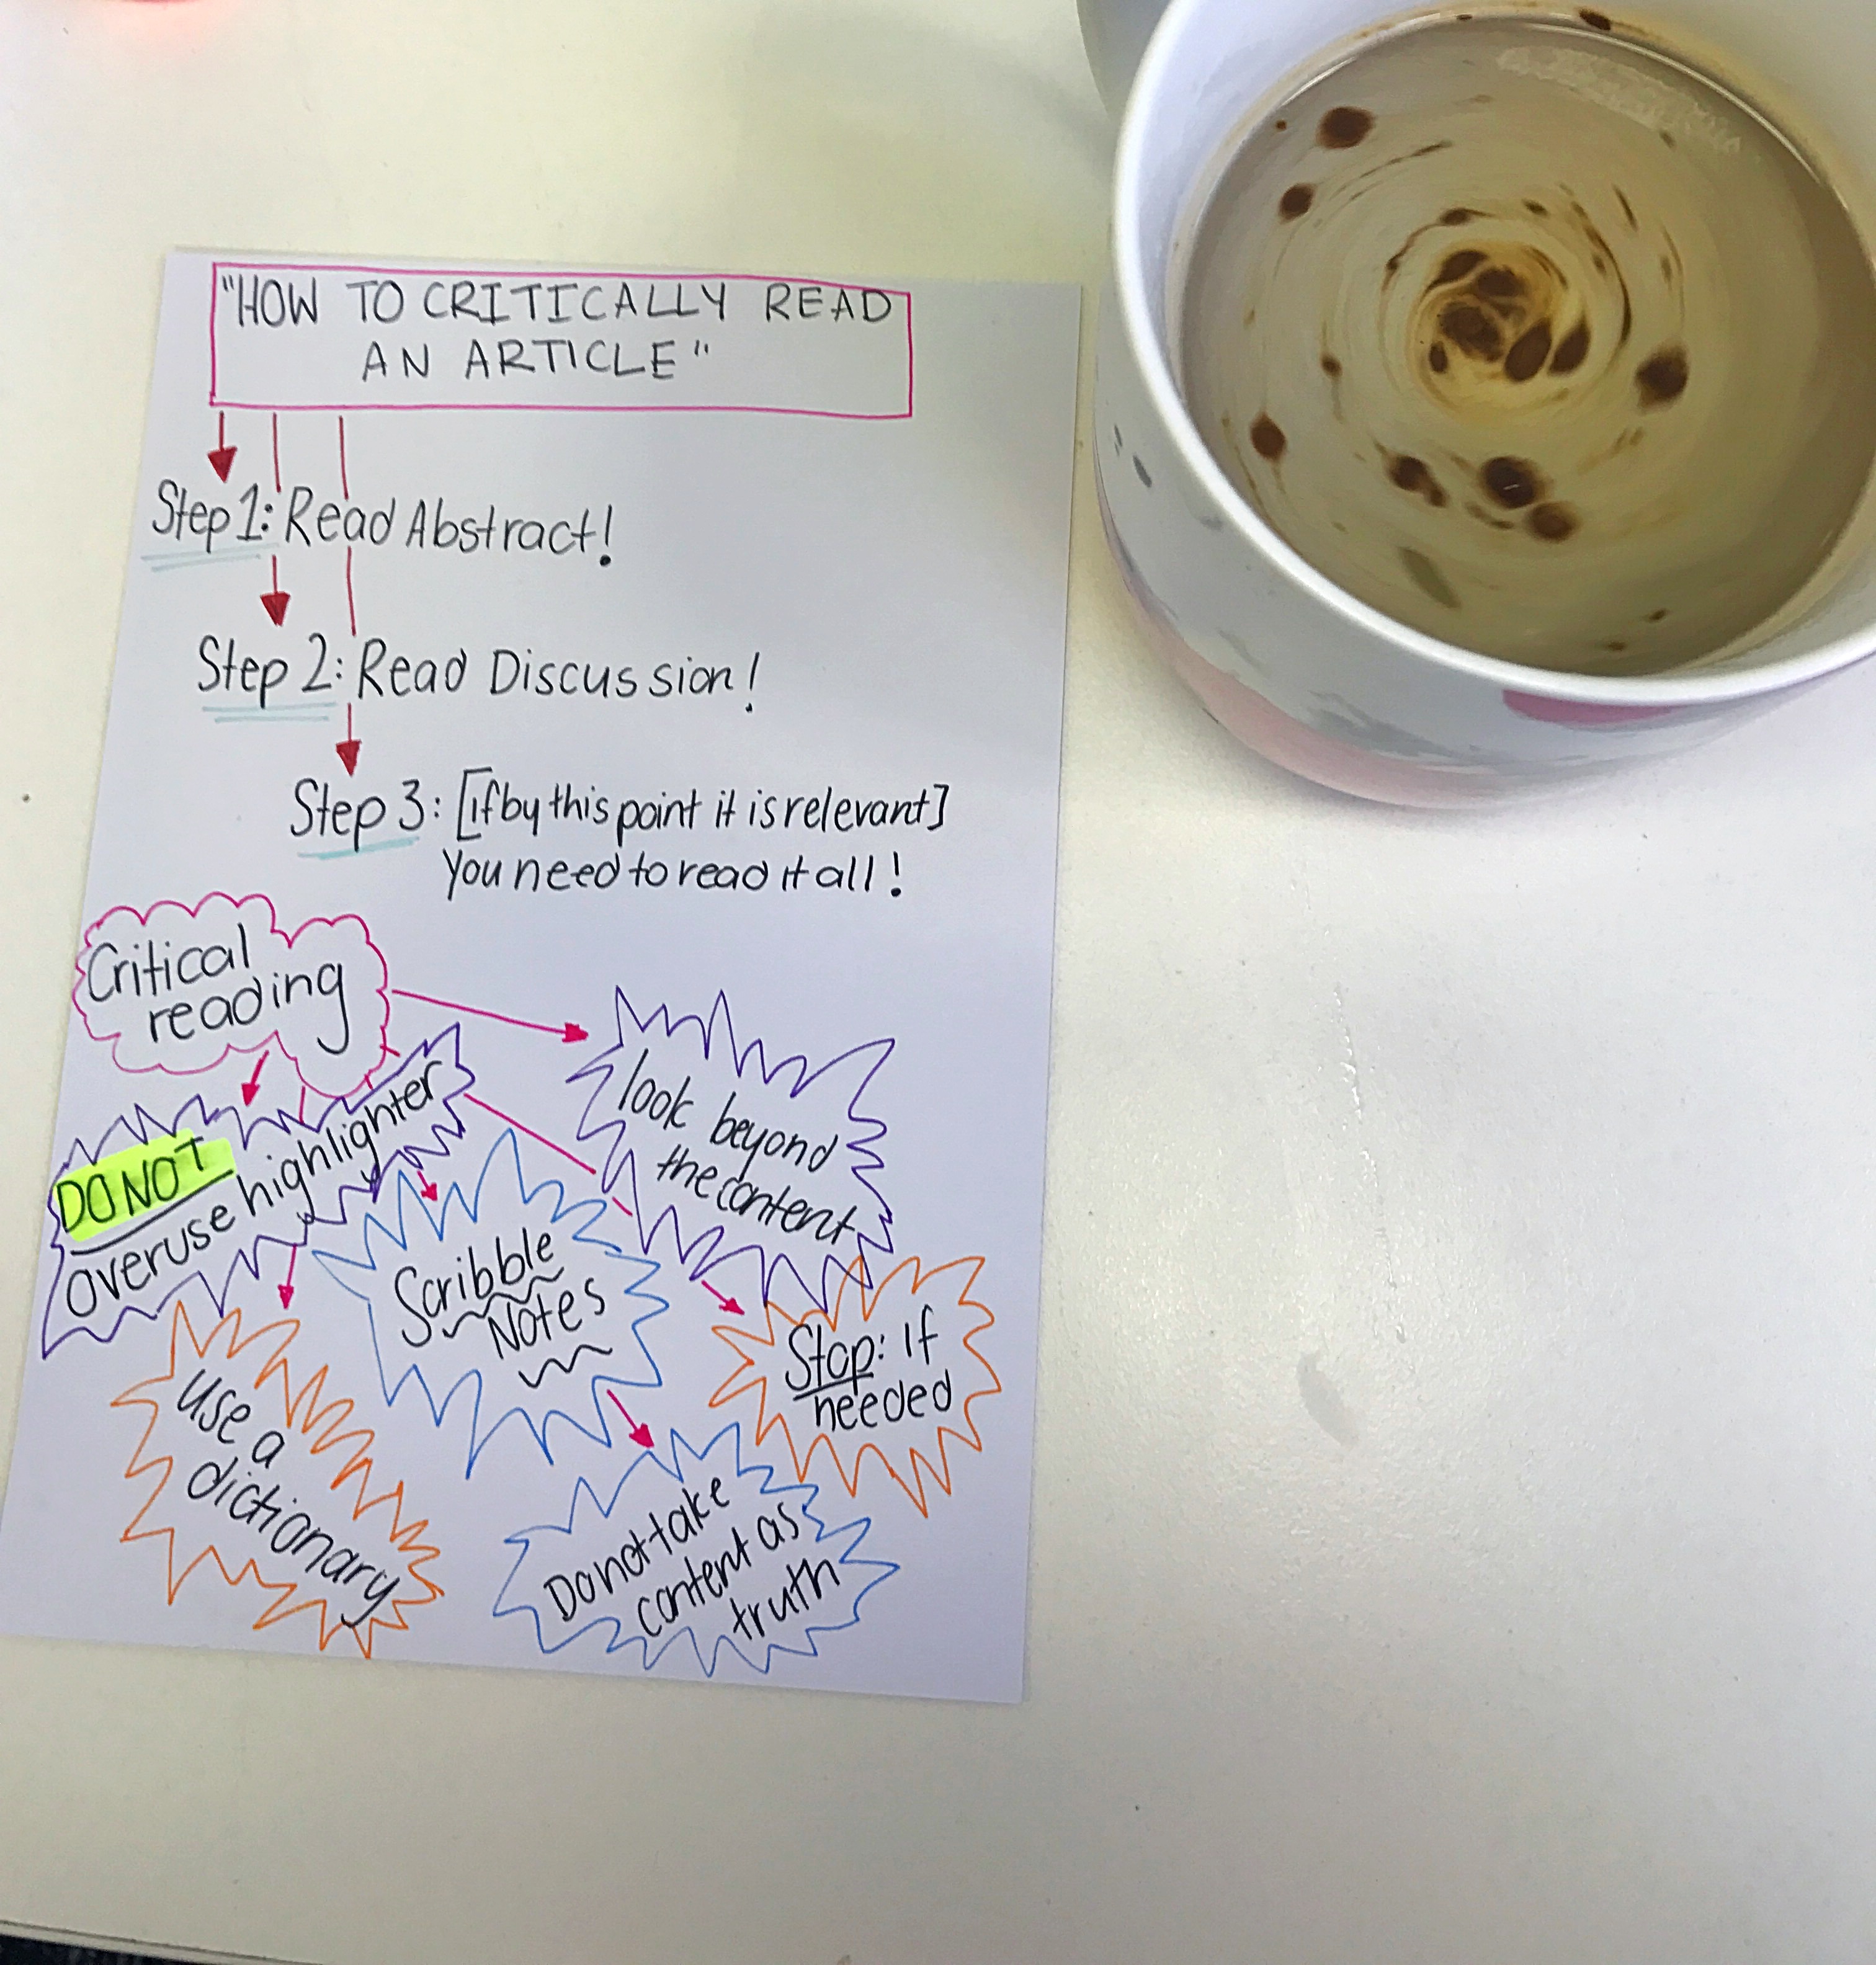 "HOW TO CRITICALLY READ
AN ARTICLE"
Step 1: Read Abstract!
Step 2: Read Discussion!
Step 3: [If by this point it is relevant]
You need to read it all!
Critical
reading
DO NOT
overuse highlighter
look beyond
the content
Scribble
Notes
Stop: if
needed
use a
dictionary
Do not take
content as
truth